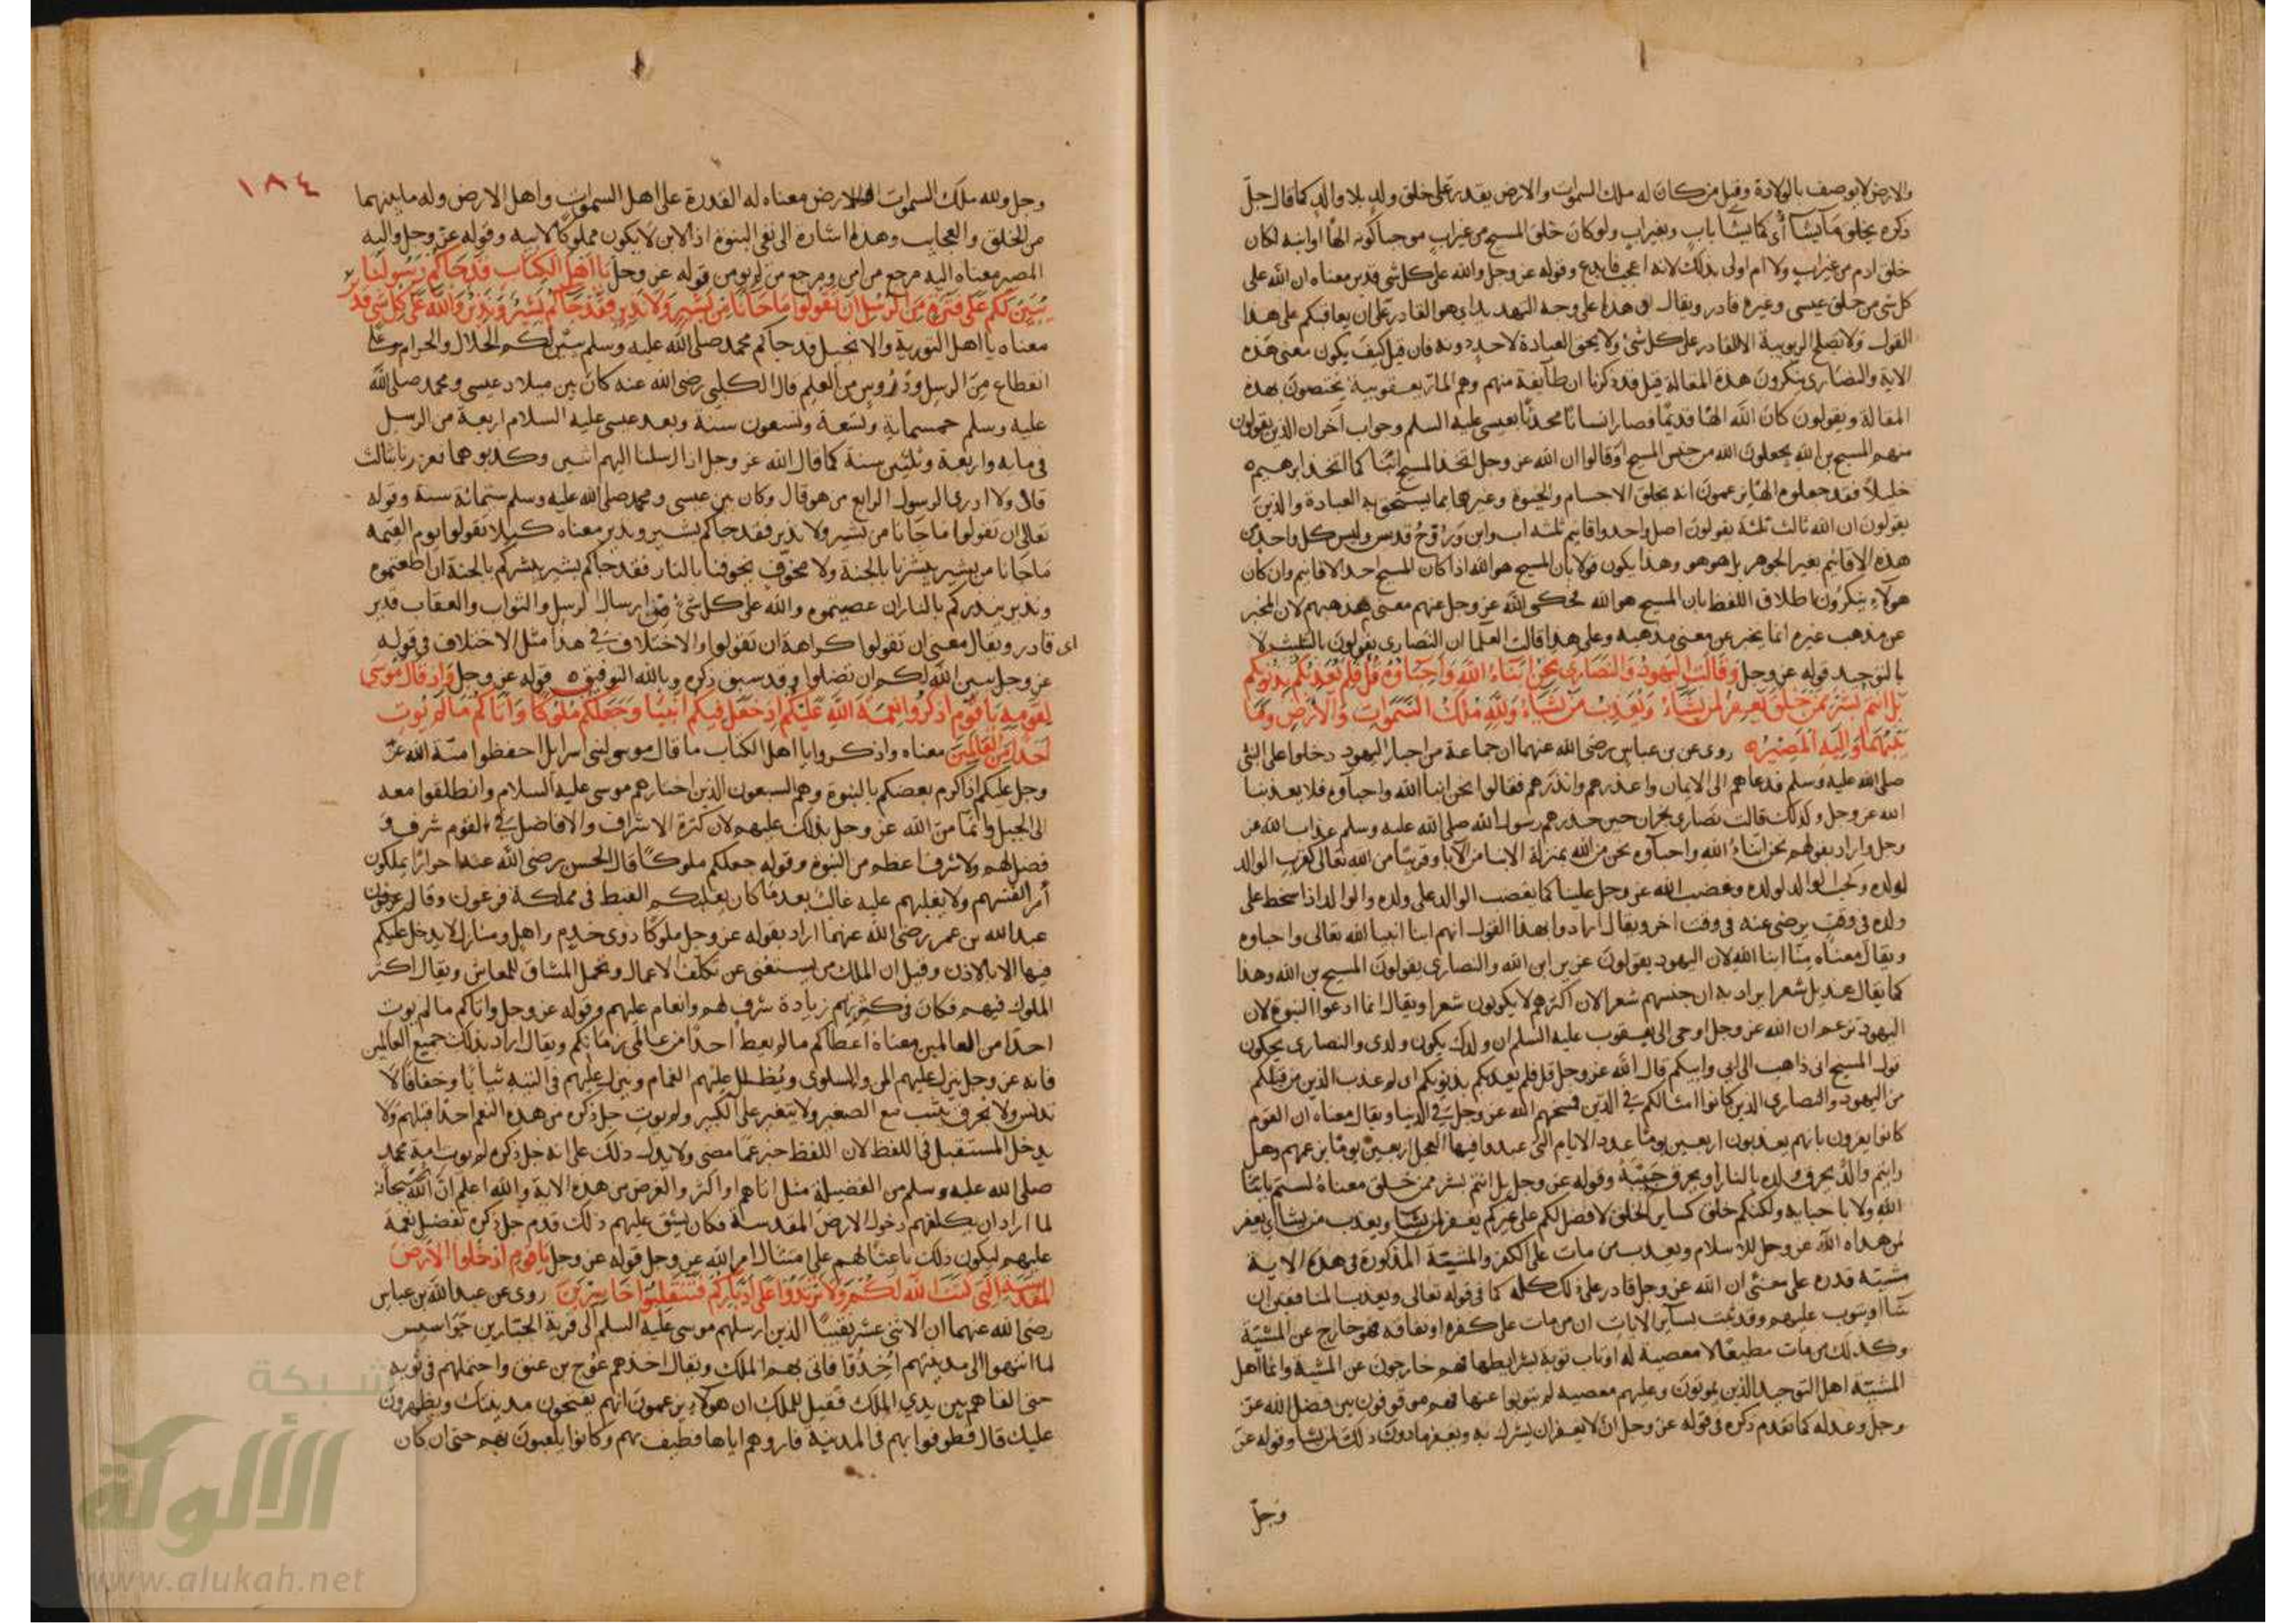 والارض لا يوصف بالولادة وقيل من كان له ملك السموات والارض يقدر على خلق ولد بلا والد كما قال جل
ذكره يخلق ما يشا أي كما يشا باب وبغير اب ولو كان خلق المسيح من غير اب موجبا كونه الها او ابنه لكان
خلق ادم من غير اب ولا ام اولى بذلك لانه اعجب فابدع وقوله عز وجل والله على كل شي قدير معناه ان الله على
كل شي من خلق عيسى وغيره قادر ويقال ان هذا على وجه التهديد اي هو القادر على ان يعاقبكم على هذا
القول ولا تصلح الربوبية الا لقادر على كل شئ ولا يحق العبادة لاحد دونه فان قيل كيف يكون معنى هذه
الاية والنصارى ينكرون هذه المقالة قيل قد ذكرنا ان طآيفة منهم وهم المار يعقوبية يختصون بهذه
المقالة ويقولون كان الله الها قديما فصار انسانا محدثا بعيسى عليه السلم وجواب آخر ان الذين يقولون
منهم المسيح بن الله يجعلون الله من جنس المسيح اوقالوا ان الله عز وجل اتخذ المسيح ابنا كما اتخذ ابرهيم
خليلا فقد جعلوه الها يزعمون انه يخلق الاجسام والحيوة وغيرها بما يستحق به العبادة والذين
يقولون ان الله ثالث ثلثة يقولون اصل واحد واقانيم ثلثه اب وابن وروح قدس وليس كل واحد من
هذه الاقانيم بغير الجوهر بل هو هو وهذا يكون قولا بان المسيح هو الله اذا كان المسيح احد الاقانيم وان كان
هولاء ينكرون اطلاق اللفظ بان المسيح هو الله فحكى الله عز وجل عنهم معنى مذهبهم لان المخبر
عن مذهب غيره انما يخبر عن معنى مذهبه وعلى هذا قالت العلما ان النصارى يقولون بالتثليث لا
بالتوحيد قوله عز وجل وقالت اليهود والنصارى نحن ابناء الله واحباؤه قل فلم يعذبكم بذنوبكم
بل انتم بشر ممن خلق يغفر لمن يشاء ويعذب من يشاء ولله ملك السموات والارض وما
بينهما واليه المصير روى عن بن عباس رضى الله عنهما ان جماعة من احبار اليهود دخلوا على النبي
صلى الله عليه وسلم فدعاهم الى الايمان واعذرهم وانذرهم فقالوا نحن ابنا الله واحباوه فلا يعذبنا
الله عز وجل وكذلك قالت نصارى نجران حين حذرهم رسول الله صلى الله عليه وسلم عذاب الله عز
وجل واراد بقولهم نحن ابناء الله واحباوه نحن من الله بمنزلة الابنا من الآبا وقربنا من الله تعالى كقرب الوالد
لولده وكحب الوالد لولده وغضب الله عز وجل علينا كما يغضب الوالد على ولده والوالد اذا سخط على
ولده في وقت يرضى عنه في وقت اخر ويقال ارادوا بهذا القول انهم ابنا انبيا الله تعالى واحباوه
ويقال معناه منا ابنا الله لان اليهود يقولون عزير ابن الله والنصارى يقولون المسيح بن الله وهذا
كما يقال هذيل شعرا يراد به ان جنسهم شعرا لان اكثرهم لا يكونون شعرا ويقال انما ادعوا البنوة لان
اليهود تزعم ان الله عز وجل اوحى الى يعقوب عليه السلم ان ولدك يكون ولدى والنصارى يحكون
قول المسيح انى ذاهب الى ابي وابيكم قال الله عز وجل قل فلم يعذبكم بذنوبكم اى لم عذب الذين من قبلكم
من اليهود والنصارى الذين كانوا امثالكم في الدين فمسخهم الله عز وجل في الدنيا ويقال معناه ان القوم
كانوا يقرون بانهم يعذبون اربعين يوما عدد الايام التي عبدوا فيها العجل اربعين يوما بزعمهم وهل
رايتم والدا يحرق ولده بالنار او يحرق حبيبه وقوله عز وجل بل انتم بشر ممن خلق معناه لستم بابنا
الله ولا باحبايه ولكنكم خلق كساير الخلق لا فضل لكم على غيركم يغفر لمن يشا ويعذب من يشا اي يغفر
لمن هداه الله عز وجل للاسلام ويعذب من مات على الكفر والمشيئة المذكورة في هذه الاية
مشيئة قدرة على معنى ان الله عز وجل قادر على ذلك كله كما في قوله تعالى ويعذب المنافقين ان
شا او يتوب عليهم وقد بينت لساير الايات ان من مات على كفره او نفاقه فهو خارج عن المشيئة
وكذلك من مات مطيعا لا معصية له او تاب توبة بشرايطها فهم خارجون عن المشيئة وانما اهل
المشيئة اهل التوحيد الذين يموتون وعليهم معصية لم يتوبوا عنها فهم موقوفون بين فضل الله عز
وجل وعدله كما تقدم ذكره في قوله عز وجل ان الله لا يغفر ان يشرك به ويغفر ما دون ذلك لمن يشا وقوله عز
وجل
١٨٤
وجل ولله ملك السموات والارض معناه له القدرة على اهل السموات واهل الارض وله ما بينهما
من الخلق والعجايب وهذه اشارة الى نفي البنوة اذ الابن لا يكون مملوكا لابيه وقوله عز وجل واليه
المصير معناه اليه مرجع من امن ومرجع من لم يومن قوله عز وجل يا اهل الكتاب قد جاكم رسولنا
يبين لكم على فترة من الرسل ان تقولوا ما جانا من بشير ولا نذير فقد جاكم بشير ونذير والله على كل شي قدير
معناه يا اهل التورية والانجيل قد جاكم محمد صلى الله عليه وسلم يبين لكم الحلال والحرام على
انقطاع من الرسل ودروس من العلم قال الكلبي رضى الله عنه كان بين ميلاد عيسى ومحمد صلى الله
عليه وسلم خمسماية وتسعة وتسعون سنة وبعد عيسى عليه السلام اربعة من الرسل
في مايه واربعة وثلثين سنة كما قال الله عز وجل اذ ارسلنا اليهم اثنين وكذبوهما فعززنا بثالث
قال ولا ادرى الرسول الرابع من هو قال وكان بين عيسى ومحمد صلى الله عليه وسلم ستمائة سنة وقوله
تعالى ان تقولوا ما جانا من بشير ولا نذير فقد جاكم بشير ونذير معناه كيلا تقولوا يوم القيمة
ما جانا من بشير يبشرنا بالجنة ولا مخوف يخوفنا بالنار فقد جاكم بشير يبشركم بالجنة ان اطعتموه
ونذير ينذركم بالنار ان عصيتموه والله على كل شئ من ارسال الرسل والثواب والعقاب قدير
اى قادر ويقال معنى ان تقولوا كراهة ان تقولوا والاختلاف في هذا مثل الاختلاف في قوله
عز وجل يبين الله لكم ان تضلوا وقد سبق ذكره وبالله التوفيق قوله عز وجل واذ قال موسى
لقومه يا قوم اذكروا نعمة الله عليكم اذ جعل فيكم انبيا وجعلكم ملوكا واتاكم ما لم يوت
احدا من العالمين معناه واذكروا يا اهل الكتاب ما قال موسى لبنى اسرايل احفظوا منة الله عز
وجل عليكم اذ اكرم بعضكم بالنبوة وهم السبعون الذين اختارهم موسى عليه السلام وانطلقوا معه
الى الجبل وانما من الله عز وجل بذلك عليهم لان كثرة الاشراف والافاضل في القوم شرف و
فضل لهم ولا شرف اعظم من النبوة وقوله جعلكم ملوكا قال الحسن رضى الله عنه احرارا يملكون
أمر انفسهم ولا يغلبهم عليه غالب بعد ما كان يغلبكم القبط في مملكة فرعون وقال
عبد الله بن عمر رضى الله عنهما اراد بقوله عز وجل ملوكا ذوى خدم واهل ومنازل لا يدخل عليكم
فيها الا بالاذن وقيل ان الملك من يستغنى عن تكلف الاعمال وتحمل المشاق للمعاش ويقال اكثر
الملوك فيهم فكان في كثرتهم زيادة شرف لهم وانعام عليهم وقوله عز وجل واتاكم ما لم يوت
احدا من العالمين معناه اعطاكم ما لم يعط احدا من عالمى زمانكم ويقال اراد بذلك جميع العالمين
فانه عز وجل ينزل عليهم المن والسلوى ويظلل عليهم الغمام وينزل عليهم في التيه ثيابا وخفافا لا
تدنس ولا تخرق تشب مع الصغير ولا يتغير على الكبير ولم يوت جل ذكره من هذه النعم احدا قبلهم ولا
يدخل المستقبل في اللفظ لان اللفظ خبر عما مضى ولا يدل ذلك على انه جل ذكره لم يوت امة محمد
صلى الله عليه وسلم من الفضيلة مثل اتاهم او اكثر والغرض من هذه الاية والله اعلم ان الله سبحانه
لما اراد ان يكلفهم دخول الارض المقدسة فكان يشق عليهم ذلك قدم جل ذكره تفضيل نعمه
عليهم ليكون ذلك باعثا لهم على امتثال امر الله عز وجل قوله عز وجل يا قوم ادخلوا الارض
المقدسة التي كتب الله لكم ولا ترتدوا على ادباركم فتنقلبوا خاسرين روى عن عبد الله بن عباس
رضى الله عنهما ان الاثنى عشر نقيبا الذين ارسلهم موسى عليه السلم الى قرية الجبارين جواسيس
لما انتهوا الى مدينتهم اخذوا فاتى بهم الملك ويقال اخذهم عوج بن عنق واحتملهم في ثوبه
حتى القاهم بين يدي الملك فقيل للملك ان هولاء يزعمون انهم يفتحون مدينتك ويظهرون
عليك قال فطوفوا بهم في المدينة فاروهم اياها فطيف بهم وكانوا يلعبون بهم حتى ان كان
شبكة
الألوكة
www.alukah.net